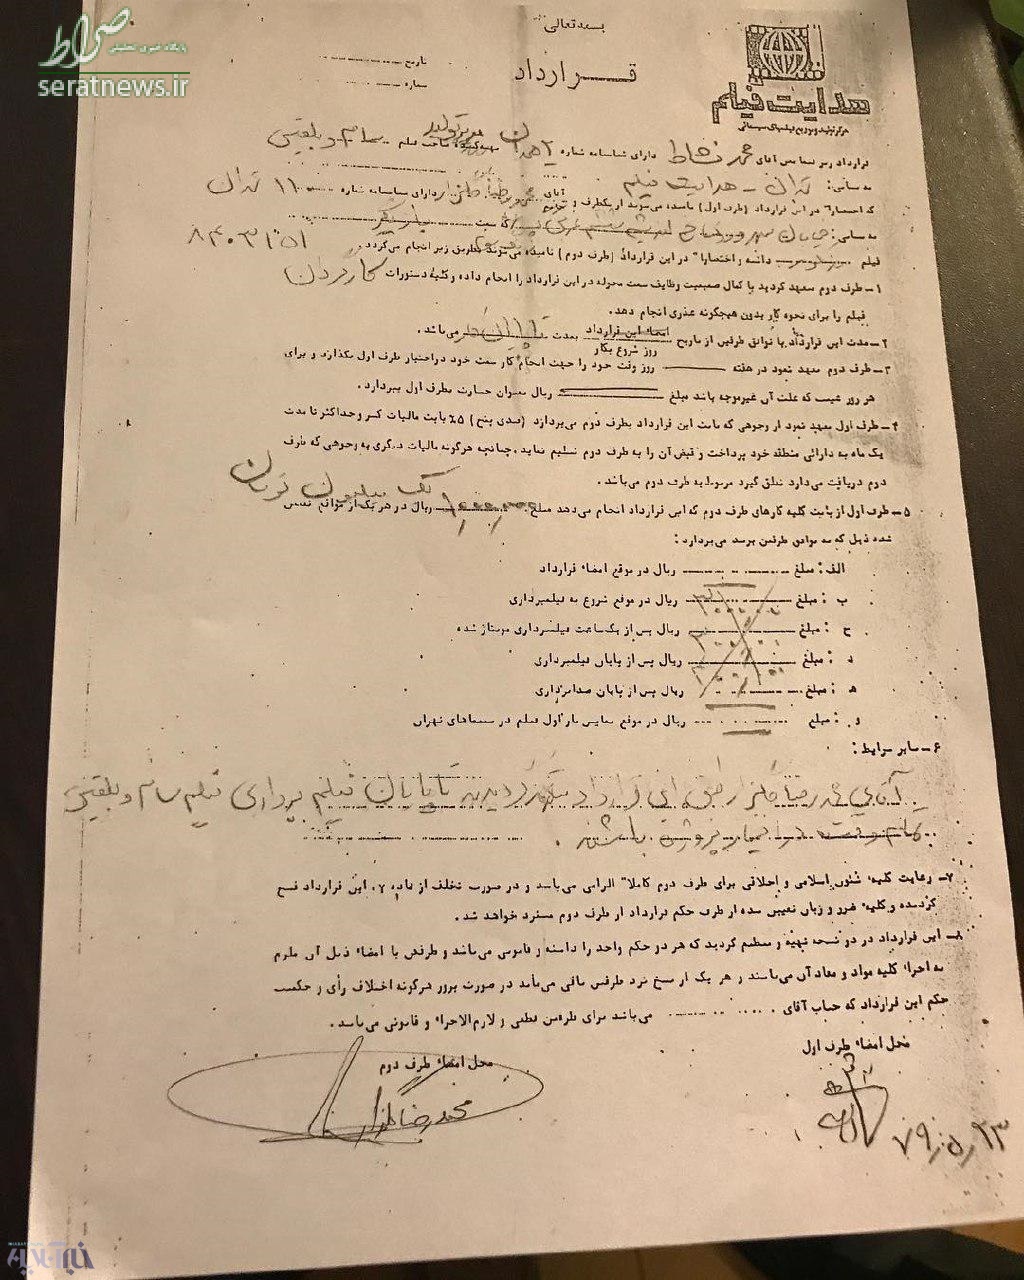 صراط
پایگاه خبری تحلیلی
seratnews.ir
بسمه‌تعالی
قرارداد
تاریخ
شماره
هدایت فیلم
مرکز تولید و توزیع فیلمهای سینمائی
قرارداد زیر بین آقای محمد نشاط دارای شناسنامه شماره تهیه‌کننده صاحب فیلم سام و بلقیس
به نشانی: تهران - هدایت فیلم
که اختصارا" در این قرارداد (طرف اول) نامیده می‌شود از یکطرف و آقای محمدرضا گلزار دارای شناسنامه شماره ۱۱ تهران
به نشانی: خیابان سهروردی که سمت بازیگر
فیلم داشته و اختصارا" در این قرارداد (طرف دوم) نامیده می‌شوند بطریق زیر انجام می‌گردد. ۸۴۰۳۱۵۱
۱- طرف دوم متعهد گردید با کمال صمیمیت وظایف سمت محوله در این قرارداد را انجام داده و کلیه دستورات کارگردان
فیلم را برای نحوه کار بدون هیچگونه عذری انجام دهد.
۲- مدت این قرارداد با توافق طرفین از تاریخ امضاء این قرارداد بمدت تا پایان می‌باشد.
روز شروع بکار
۳- طرف دوم متعهد نمود در هفته روز وقت خود را جهت انجام کار سمت خود در اختیار طرف اول بگذارد و برای
هر روز غیبت که علت آن غیرموجه باشد مبلغ ریال بعنوان خسارت بطرف اول بپردارد.
۴- طرف اول متعهد نمود از وجوهی که بابت این قرارداد بطرف دوم می‌پردازد (صدی پنج) ۵٪ بابت مالیات کسر و حداکثر تا مدت
یک ماه به دارائی منطقه خود پرداخت و قبض آن را به طرف دوم تسلیم نماید، چنانچه هرگونه مالیات دیگری به وجوهی که طرف
دوم دریافت می‌دارد تعلق گیرد مربوط به طرف دوم می‌باشد.
یک میلیون تومان
۵- طرف اول از بابت کلیه کارهای طرف دوم که این قرارداد انجام می‌دهد مبلغ ریال در هر یک از مواقع تعیین
شده ذیل که به توافق طرفین برسد می‌پردازد:
الف: مبلغ ریال در موقع امضاء قرارداد
ب: مبلغ ریال در موقع شروع به فیلمبرداری
ج: مبلغ ریال پس از یکساعت فیلمبرداری مونتاژ شده
د: مبلغ ریال پس از پایان فیلمبرداری
ه: مبلغ ریال پس از پایان صدابرداری
و: مبلغ ریال در موقع نمایش بار اول فیلم در سینماهای تهران
۶- سایر شرایط:
آقای محمدرضا گلزار طبق این قرارداد متعهد گردیدند تا پایان فیلم برداری فیلم سام و بلقیس
تمام وقت در اختیار پروژه باشند.
۷- رعایت کلیه شئون اسلامی و اخلاقی برای طرف دوم کاملا" الزامی می‌باشد و در صورت تخلف از ماده ۷، این قرارداد فسخ
گردیده و کلیه ضرر و زیان تعیین شده از طرف حکم قرارداد از طرف دوم مسترد خواهد شد.
۸- این قرارداد در دو نسخه تهیه و تنظیم گردید که هر دو حکم واحد را داشته و قانونی می‌باشد و طرفین با امضاء ذیل آن ملزم
به اجراء کلیه مواد و مفاد آن می‌باشند و هر یک از نسخ نزد طرفین باقی می‌ماند در صورت بروز هرگونه اختلاف رأی و حکمیت
حکم این قرارداد که جناب آقای می‌باشد برای طرفین قطعی و لازم‌الاجراء و قانونی می‌باشد.
محل امضاء طرف اول
محل امضاء طرف دوم
محمدرضا گلزار
۷۹/۵/۲۳
خبرآنلاین